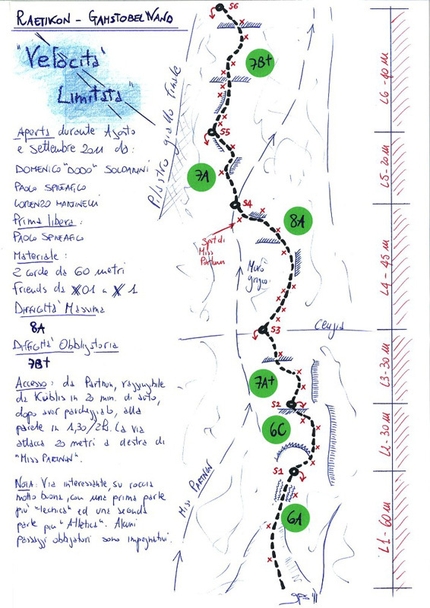 RAETIKON - GAMSTOBELWAND
"Velocità
Limitata"
Aperta durante Agosto
e Settembre 2011 da:
DOMENICO "DODO" SOLDARINI
PAOLO SPREAFICO
LORENZO MARINELLI
Prima libera:
PAOLO SPREAFICO
Materiale:
2 corde da 60 metri
Friends da
DIFFICOLTA' MASSIMA
8A
DIFFICOLTA' OBBLIGATORIA
7B+
ACCESSO: da Partnun, raggiungibile
da Küblis in 20 min. di auto,
dopo aver parcheggiato, alla
parete in 1,30/2h. La via
attacca 20 metri a destra di
"MISS PARTNUN".
NOTA: Via interessante, su roccia
molto buona, con una prima parte
più "tecnica" ed una seconda
parte più "Atletica". Alcuni
passaggi obbligatori sono impegnativi.
S6
7B+
Pilastro giallo finale
S5
7A
S4
8A
Spit di
Miss
Partnun
Muro
grigio
S3
Cengia
7A+
S2
6C
S1
MISS PARTNUN
6A
L6-40 M
L5-20 M
L4-45 M
L3-30 M
L2-30 M
L1-60 M